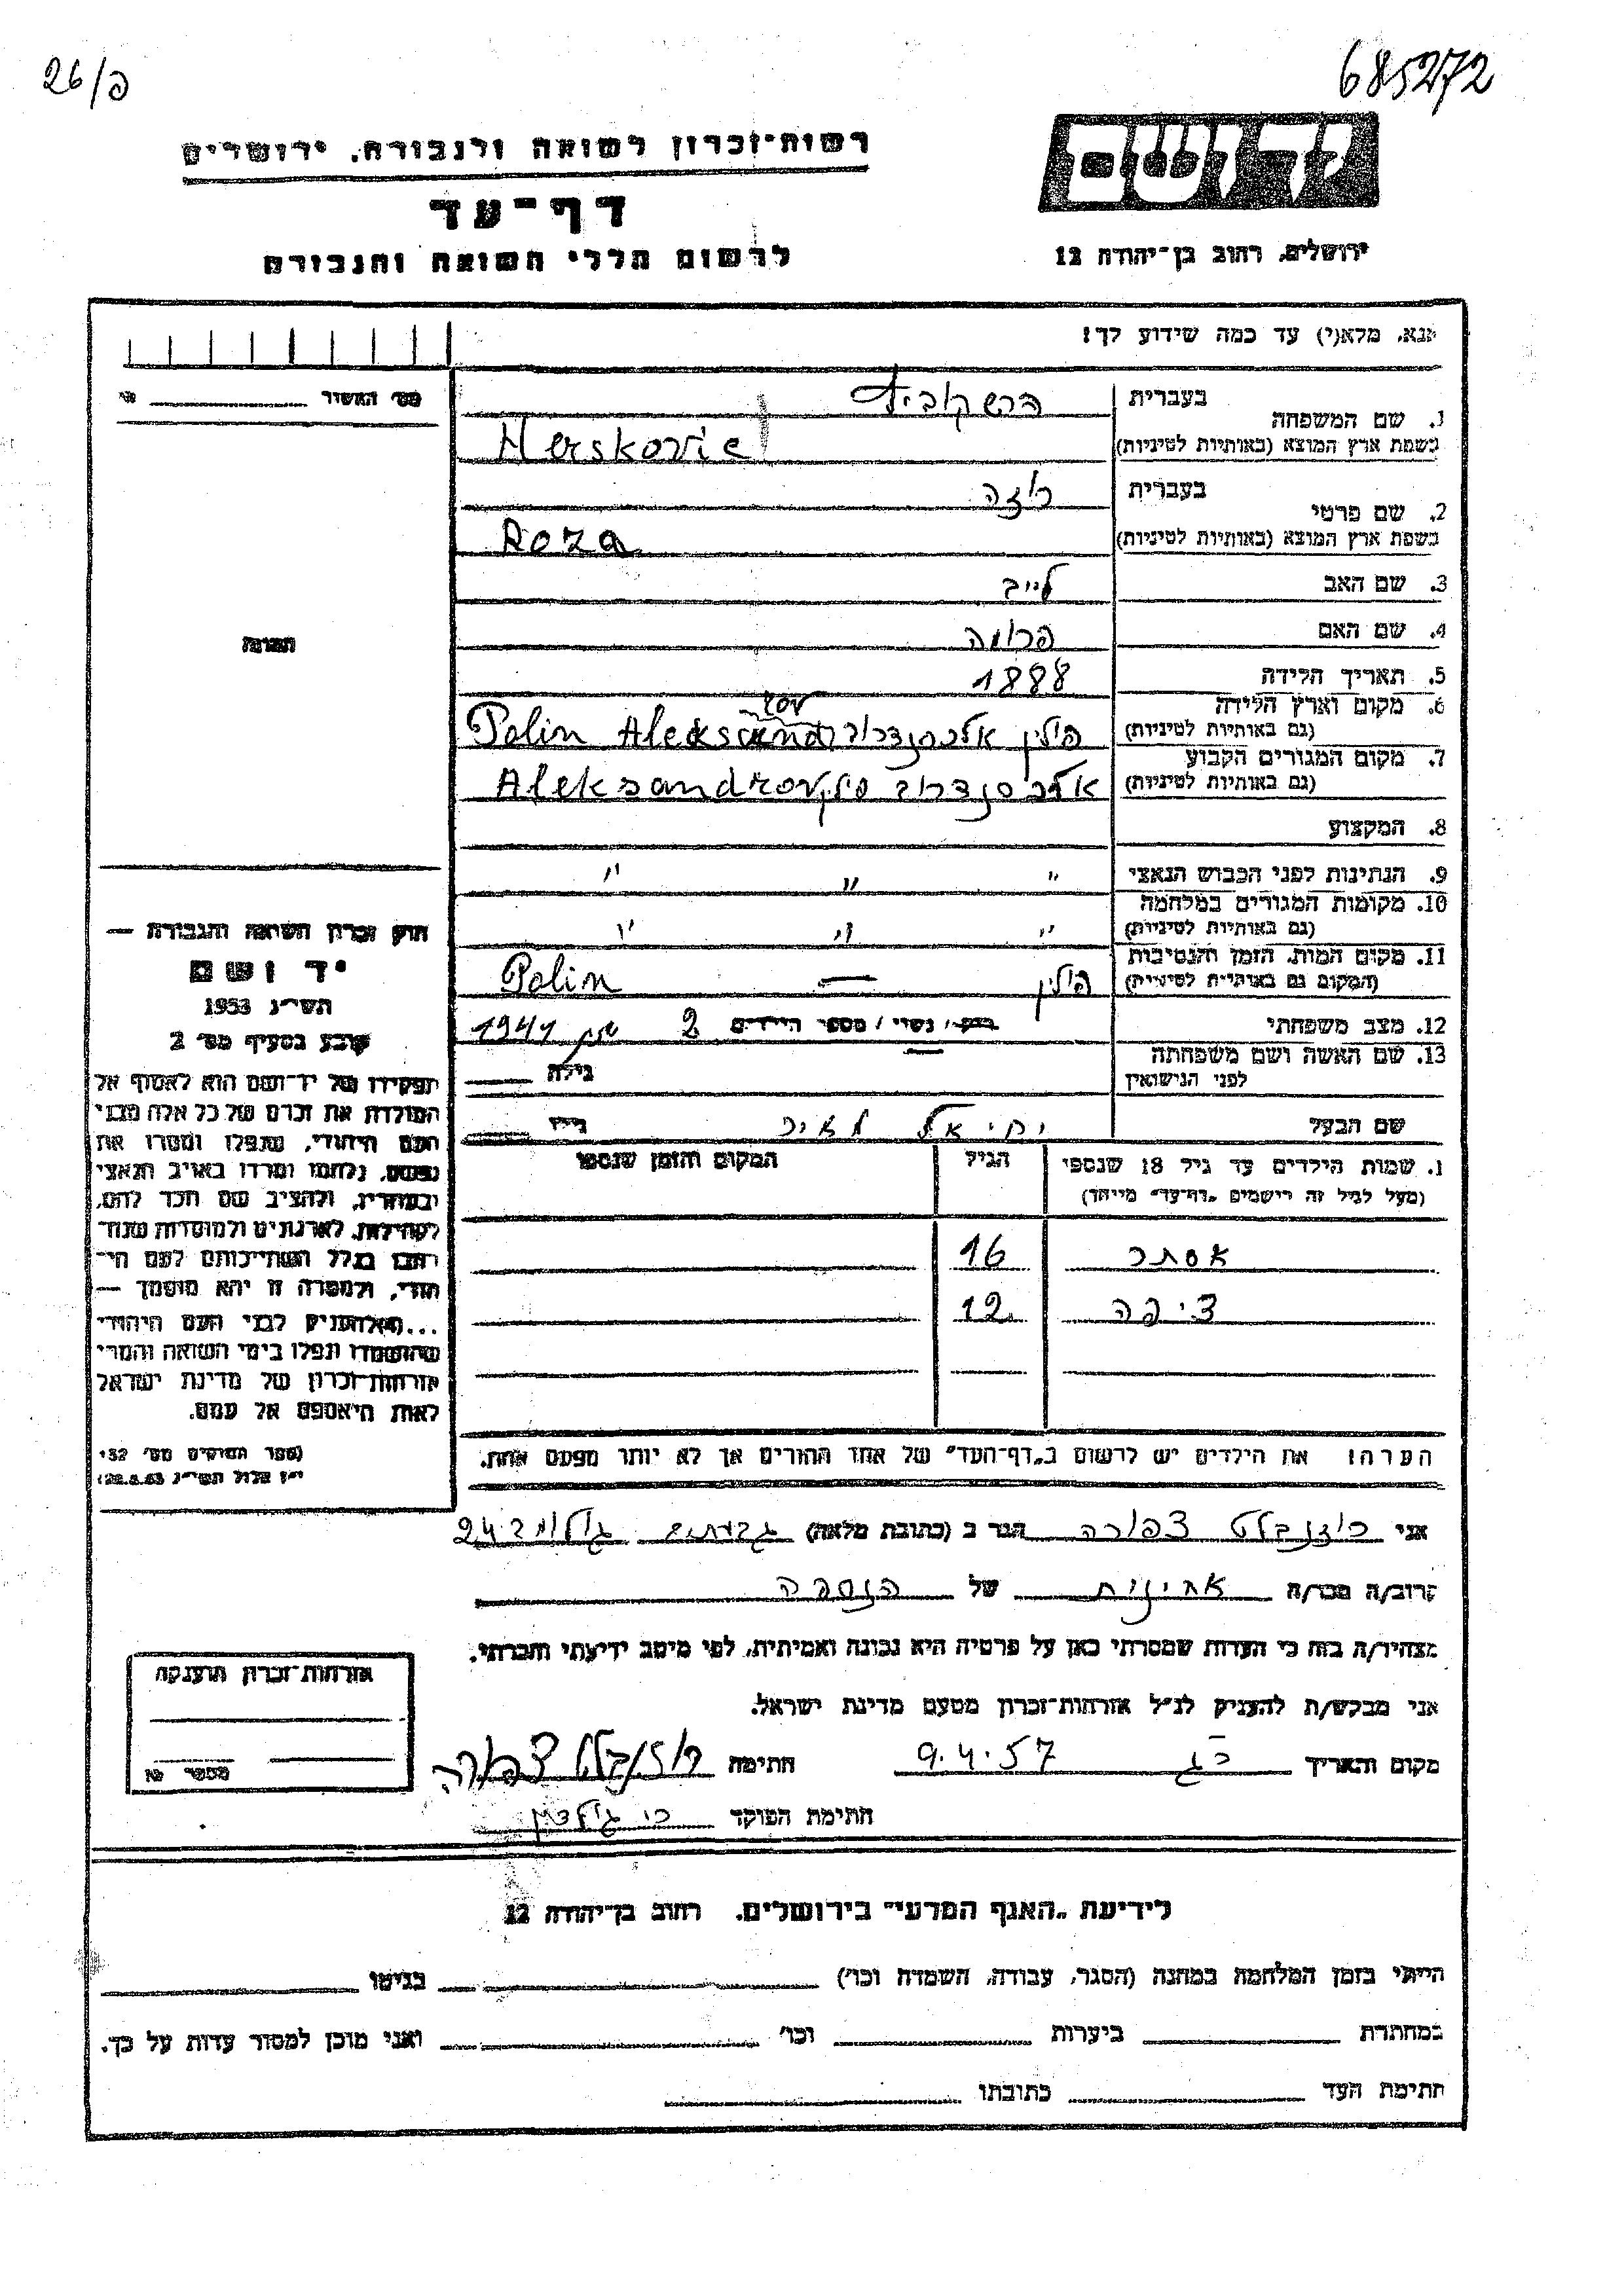 26/פ
685272
רשות-זכרון לשואה ולגבורה, ירושלים
יד ושם
דף-עד
לרשום חללי השואה והגבורה
ירושלים, רחוב בן-יהודה 12
אנא, מלא(י) עד כמה שידוע לך!
מס' האשור
1. שם המשפחה
בעברית הרשקוביץ
בשפת ארץ המוצא (באותיות לטיניות) Herskovic
2. שם פרטי
בעברית רוזה
בשפת ארץ המוצא (באותיות לטיניות) Roza
3. שם האב לייב
4. שם האם פרומה
תמונה
5. תאריך הלידה 1888
6. מקום וארץ הלידה
(גם באותיות לטיניות) פולין אלכסנדרוב Polin Aleksandrov
7. מקום המגורים הקבוע
(גם באותיות לטיניות) אלכסנדרוב Aleksandrov
8. המקצוע
9. הנתינות לפני הכבוש הנאצי " " "
10. מקומות המגורים במלחמה
(גם באותיות לטיניות) " " "
11. מקום המות, הזמן והנסיבות
(המקום גם באותיות לטיניות) פולין — Polin
12. מצב משפחתי רווק / נשוי / מספר הילדים 2 1941
13. שם האשה ושם משפחתה
לפני הנישואין גילה
שם הבעל יחיאל מאיר גילו
1. שמות הילדים עד גיל 18 שנספו
(מעל לגיל זה רישמים "דף-עד" מייחד)
הגיל
המקום והזמן שנספו
אסתר 16
ציפה 12
הערה: את הילדים יש לרשום ב"דף-העד" של אחד ההורים אך לא יותר מפעם אחת.
חוק זכרון השואה והגבורה —
יד ושם
תשי"ג 1953
קובע בסעיף מס' 2
תפקידו של יד-ושם הוא לאסוף אל
המולדת את זכרם של כל אלה מבני
העם היהודי, שנפלו ומסרו את
נפשם, נלחמו ומרדו באויב הנאצי
ובעוזריו, ולהציב שם וזכר להם,
לקהילות, לארגונים ולמוסדות שנח־
רבו בגלל השתייכותם לעם הי־
הודי, ולמטרה זו יהא מוסמך —
...להעניק לבני העם היהודי
שהושמדו ונפלו בימי השואה והמרי
אזרחות-זכרון של מדינת ישראל
לאות היאספם אל עמם.
(ספר החוקים מס' 132
י"ז אלול תשי"ג 28.8.53)
אני רוזנבלט צפורה הגר ב (כתובת מלאה) גבעתיים 24
קרוב/ה מכר/ה אחינית של הנספה
מצהיר/ה בזה כי העדות שמסרתי כאן על פרטיה היא נכונה ואמיתית, לפי מיטב ידיעתי והכרתי.
אני מבקש/ת להעניק לנ"ל אזרחות-זכרון מטעם מדינת ישראל.
מקום ותאריך רג 9.4.57 חתימה רוזנבלט צפורה
חתימת הפוקד
אזרחות-זכרון הוענקה
מספר
לידיעת "האגף המדעי" בירושלים, רחוב בן-יהודה 12
הייתי בזמן המלחמה במחנה (הסגר, עבודה, השמדה וכו') בגיטו
במחתרת ביערות וכו' ואני מוכן למסור עדות על כך.
חתימת העד כתובתו